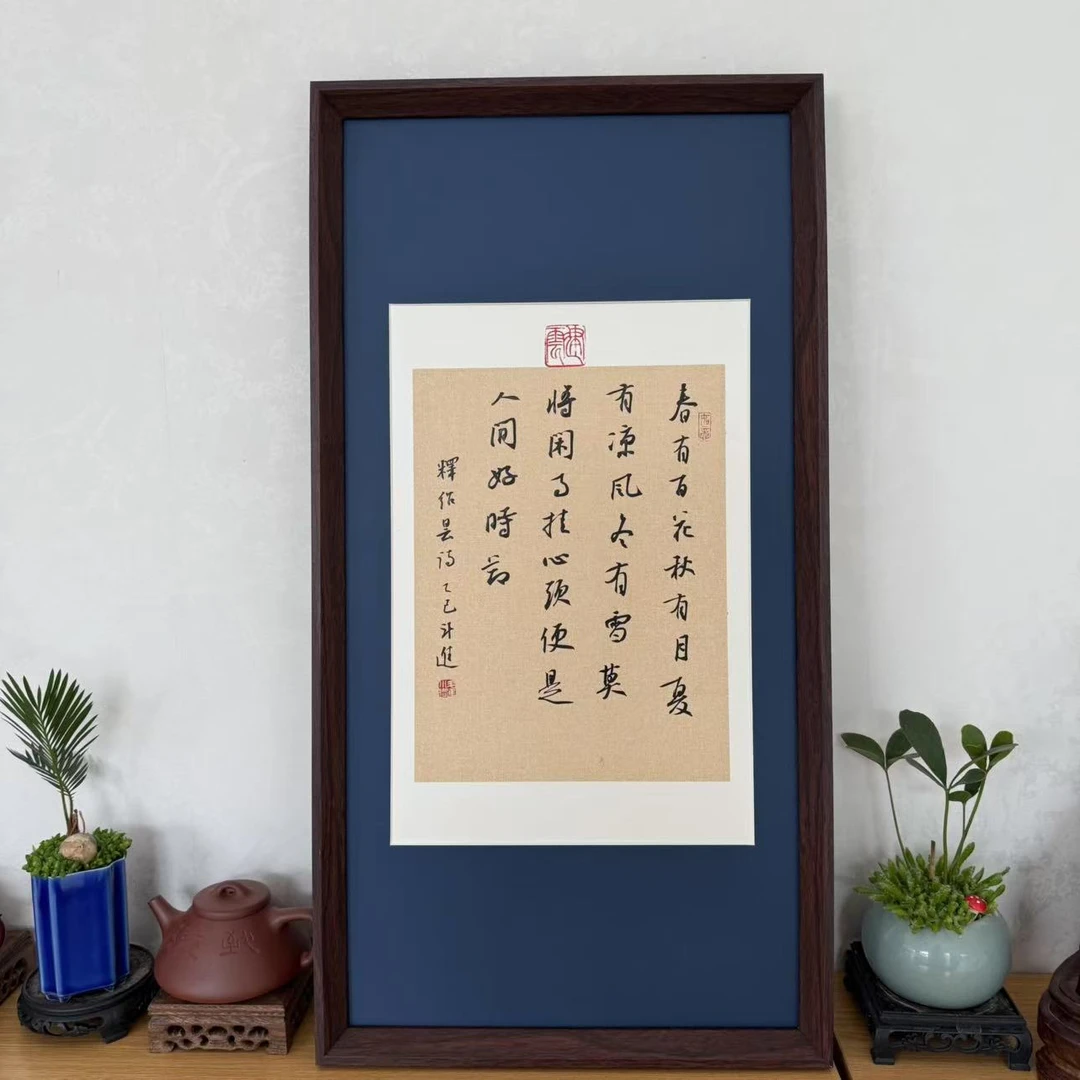 春有百花秋有月夏
有凉风冬有雪莫
将闲事挂心頭便是
人间好時節
釋绍昙诗 乙巳 進